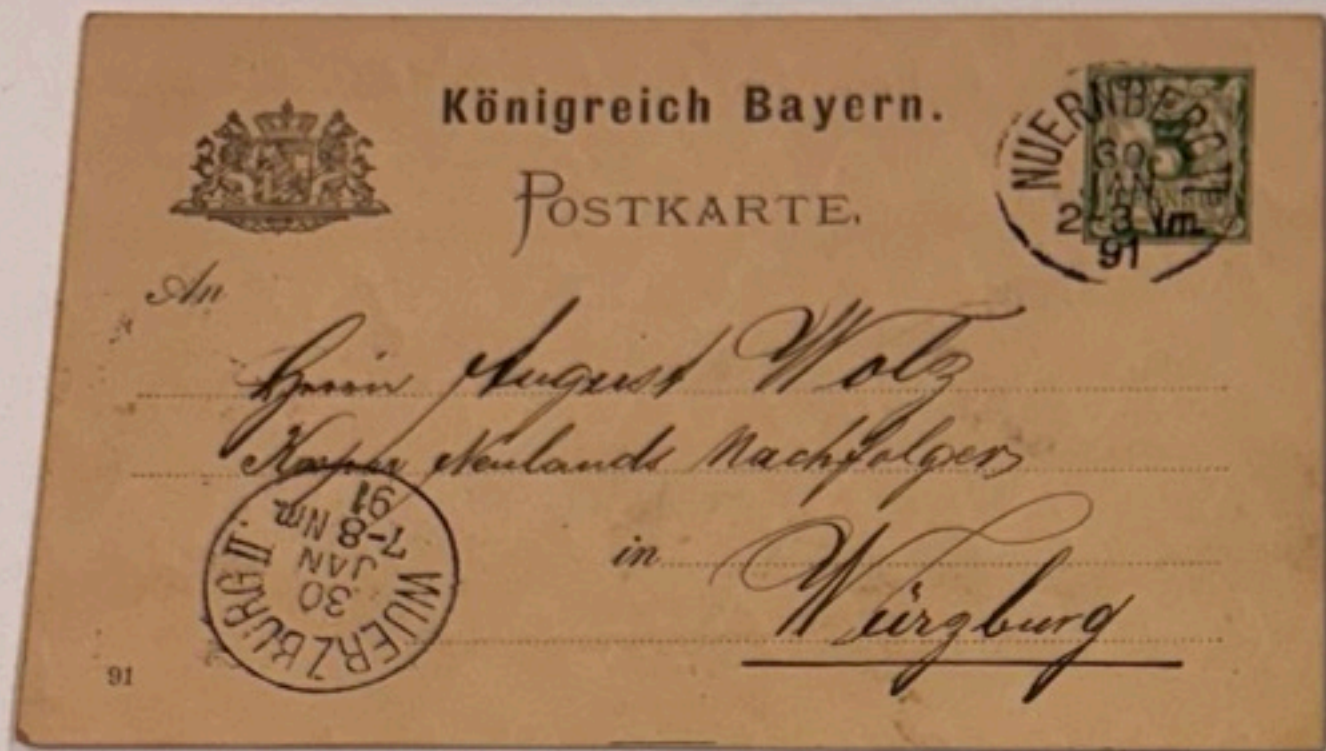 Königreich Bayern.
POSTKARTE.
NUERNBERG II
30
JAN
2-3 Nm.
91
5
PFENNIG
An
Herrn August Wolz
Neulands Nachfolger
in Würzburg
WUERZBURG II.
30
JAN
7-8 Nm.
91
91